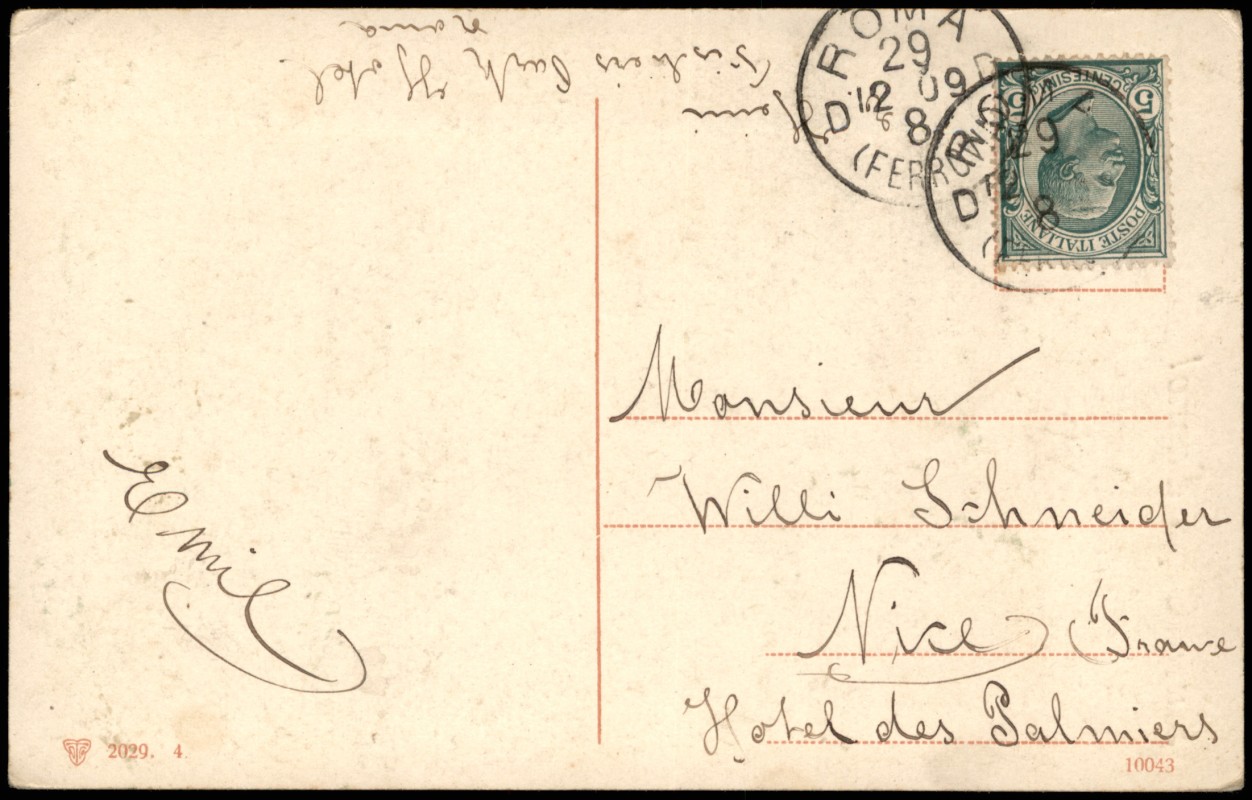 ROMA
29
12 09
8
(FERROVIA)
ROMA
29
12
8
5
CENTESIMI
5
POSTE ITALIANE
Hotel
Roma
Monsieur
Willi Schneider
Nice (France
Hotel des Palmiers
Emil
2029. 4
10043